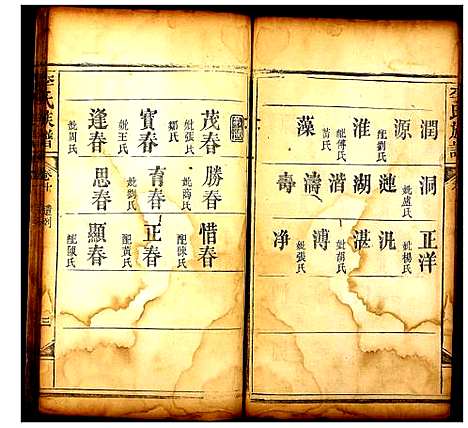 李氏族譜
潤 源 淮 藻
配劉氏
配傅氏
洞 漣 湖 湝 濤 壽
妣盧氏
正洋 洸 湛 溥 净
妣楊氏
妣胡氏
妣張氏
茂春 寶春 逢春
妣張氏
鄒氏
妣王氏
妣周氏
勝春 育春 思春
妣商氏
妣劉氏
惜春 正春 顯春
配陳氏
配黃氏
配陳氏
李氏族譜
卷十
三